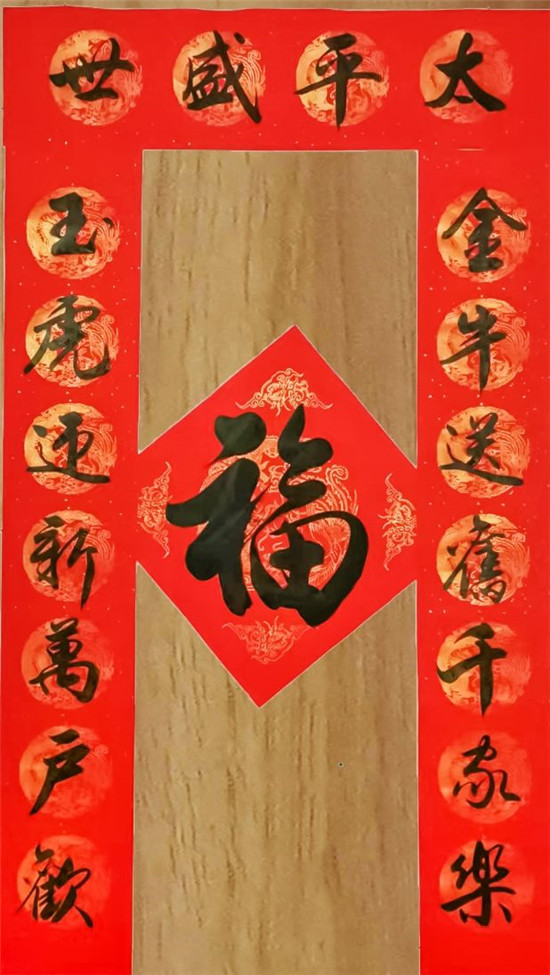 太平盛世
金牛送舊千家樂
玉虎迎新萬戶歡
福